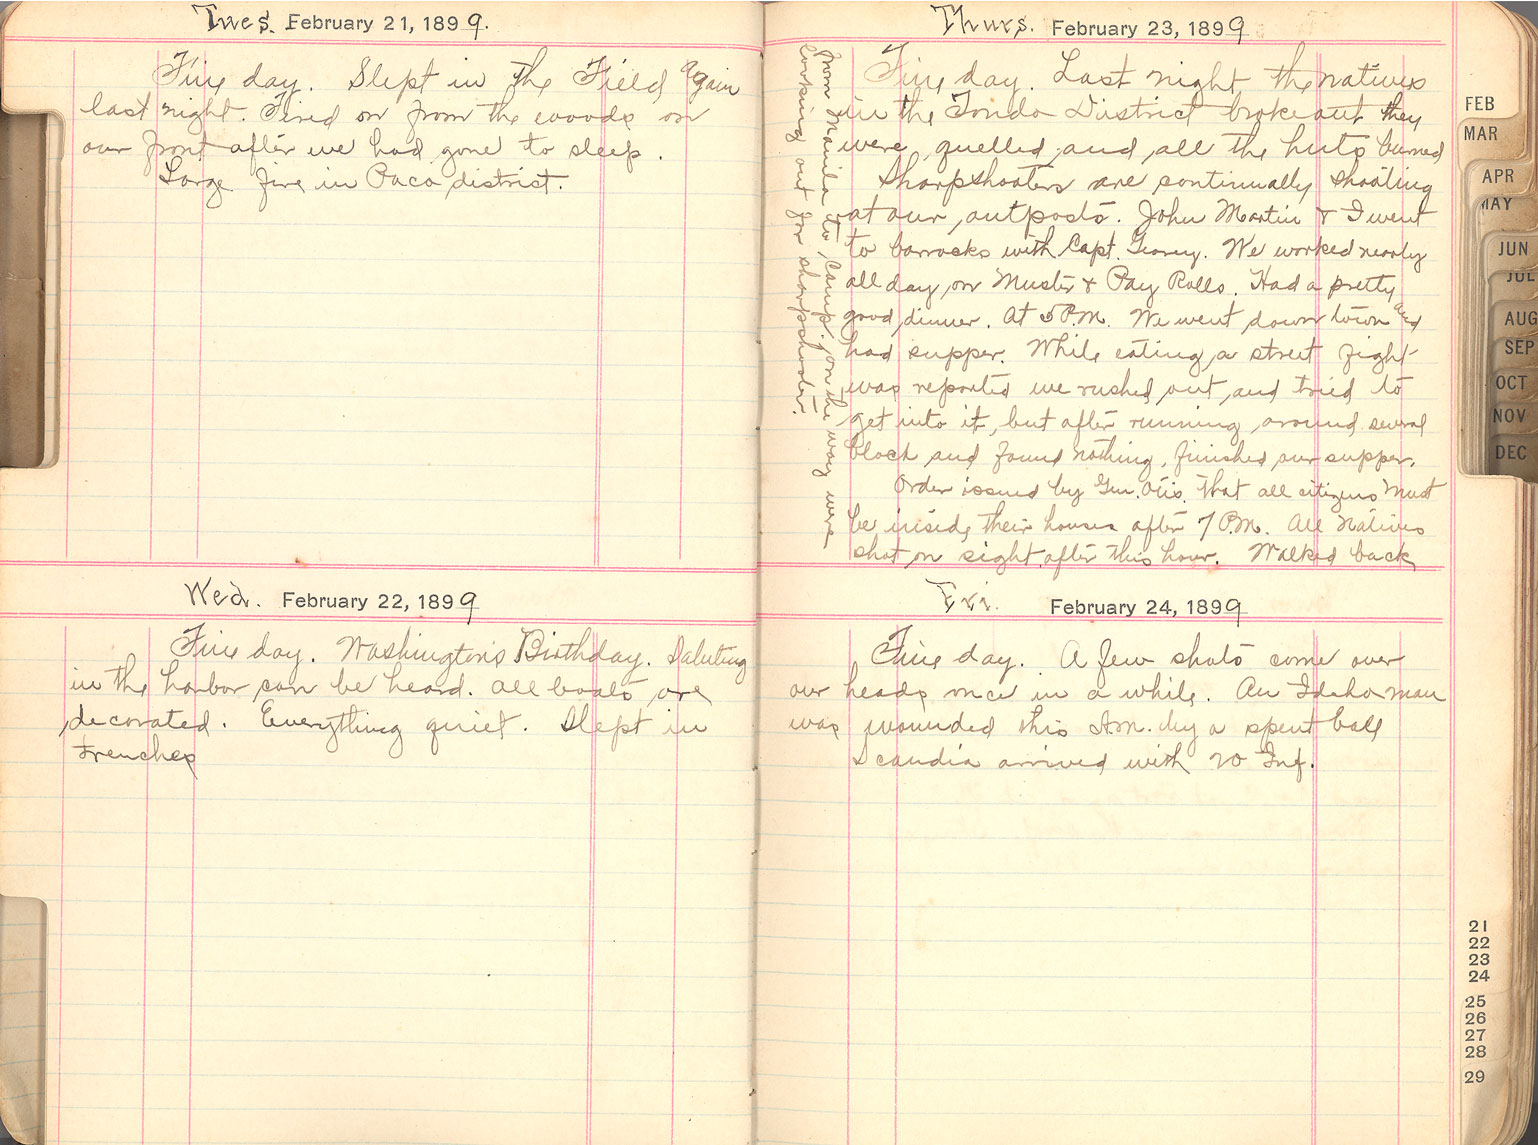 Tues. February 21, 1899.
Fine day. Slept in the Field again
last night. Fired on from the woods on
our front after we had gone to sleep.
Large fire in Paco district.
Wed. February 22, 1899
Fine day. Washington's Birthday. Saluting
in the harbor can be heard. All boats are
decorated. Everything quiet. Slept in
trenches
Thurs. February 23, 1899
Fine day. Last night, the natives
in the Tondo District broke out they
were quelled and all the huts burned
Sharpshooters are continually shooting
at our outposts. John Martin & I went
to barracks with Capt. Geary. We worked nearly
all day on Muster & Pay Rolls. Had a pretty
good dinner. At 5 P.M. We went down town and
had supper. While eating a street fight
was reported we rushed out and tried to
get into it, but after running around several
block and found nothing, finished our supper.
Order issued by Gen. Otis that all citizens must
be inside their houses after 7 P.M. All Natives
shot on sight after this hour. Walked back
from Manila to Camp, on the way were
looking out for sharpshooters.
Fri. February 24, 1899
Fine day. A few shots come over
our heads once in a while. An Idaho man
was wounded this A.M. by a spent ball
Scandia arrived with 20 Inf.
FEB
MAR
APR
MAY
JUN
JUL
AUG
SEP
OCT
NOV
DEC
21
22
23
24
25
26
27
28
29